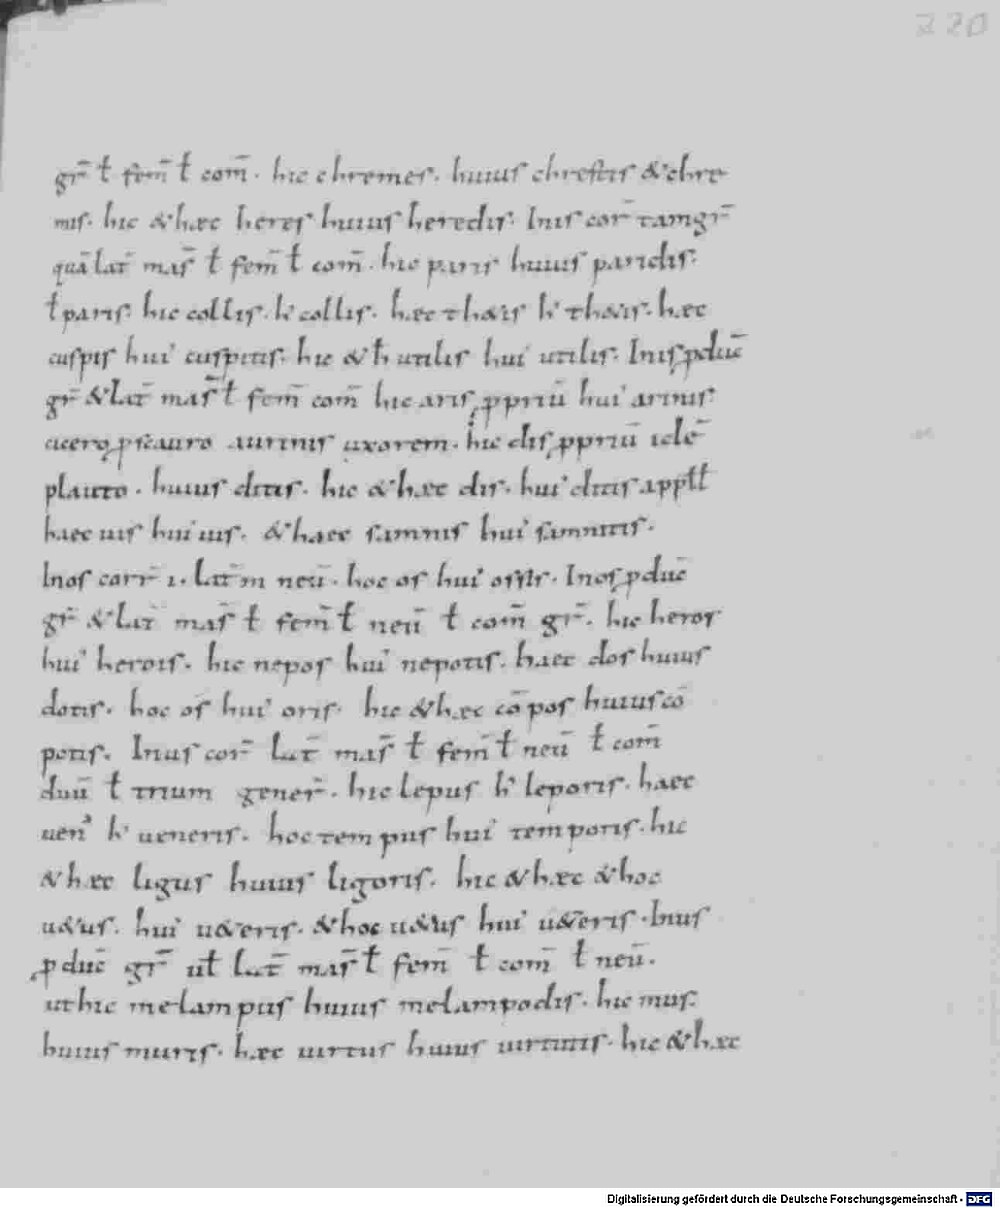 220
gr̄ ł fem̄ ł com̄. hic chremes. huius chremis & chre
mis. hic & hæc heres huius heredis. In is cor̄ tam gr̄
quā lat̄ mas̄ ł fem̄ ł com̄. hic paris huius paridis.
ł paris. hic collis. h' collis. hæc thais h' thais. hæc
cuspis hui' cuspitis. hic & h̄ utilis hui' utilis. In is ꝓduc̄
gr̄ & lat̄ mas̄ ł fem̄ com̄ hic aris ꝓpriū hui' arinis
cicero ꝓ scauro aurinis uxorem. hic dis ꝓpriū idē
plauto. huius ditis. hic & hæc dis. hui' ditis appłł
haec uis hui' uis. & haec samnis hui' samnitis.
In os corr̄ i. lat̄ in neū. hoc os hui' ossis. In os ꝓduc̄
gr̄ & lat̄ mas̄ ł fem̄ ł neū ł com̄ gr̄. hic heros
hui' herois. hic nepos hui' nepotis. haec dos huius
dotis. hoc os hui' oris. hic & hæc cōpos huius cō
potis. In us cor̄ lat̄ mas̄ ł fem̄ ł neū ł com̄
duū ł trium gener̄. hic lepus h' leporis. haec
uen' h' ueneris. hoc tempus hui' temporis. hic
& hæc ligus huius ligoris. hic & hæc & hoc
u&us. hui' u&eris. & hoc u&us hui' u&eris. In us
ꝓduc̄ gr̄ uł lat̄ mas̄ ł fem̄ ł com̄ ł neū.
ut hic melampus huius melampodis. hic mus.
huius muris. hæc uirtus huius uirtutis. hic & hæc
Digitalisierung gefördert durch die Deutsche Forschungsgemeinschaft - DFG